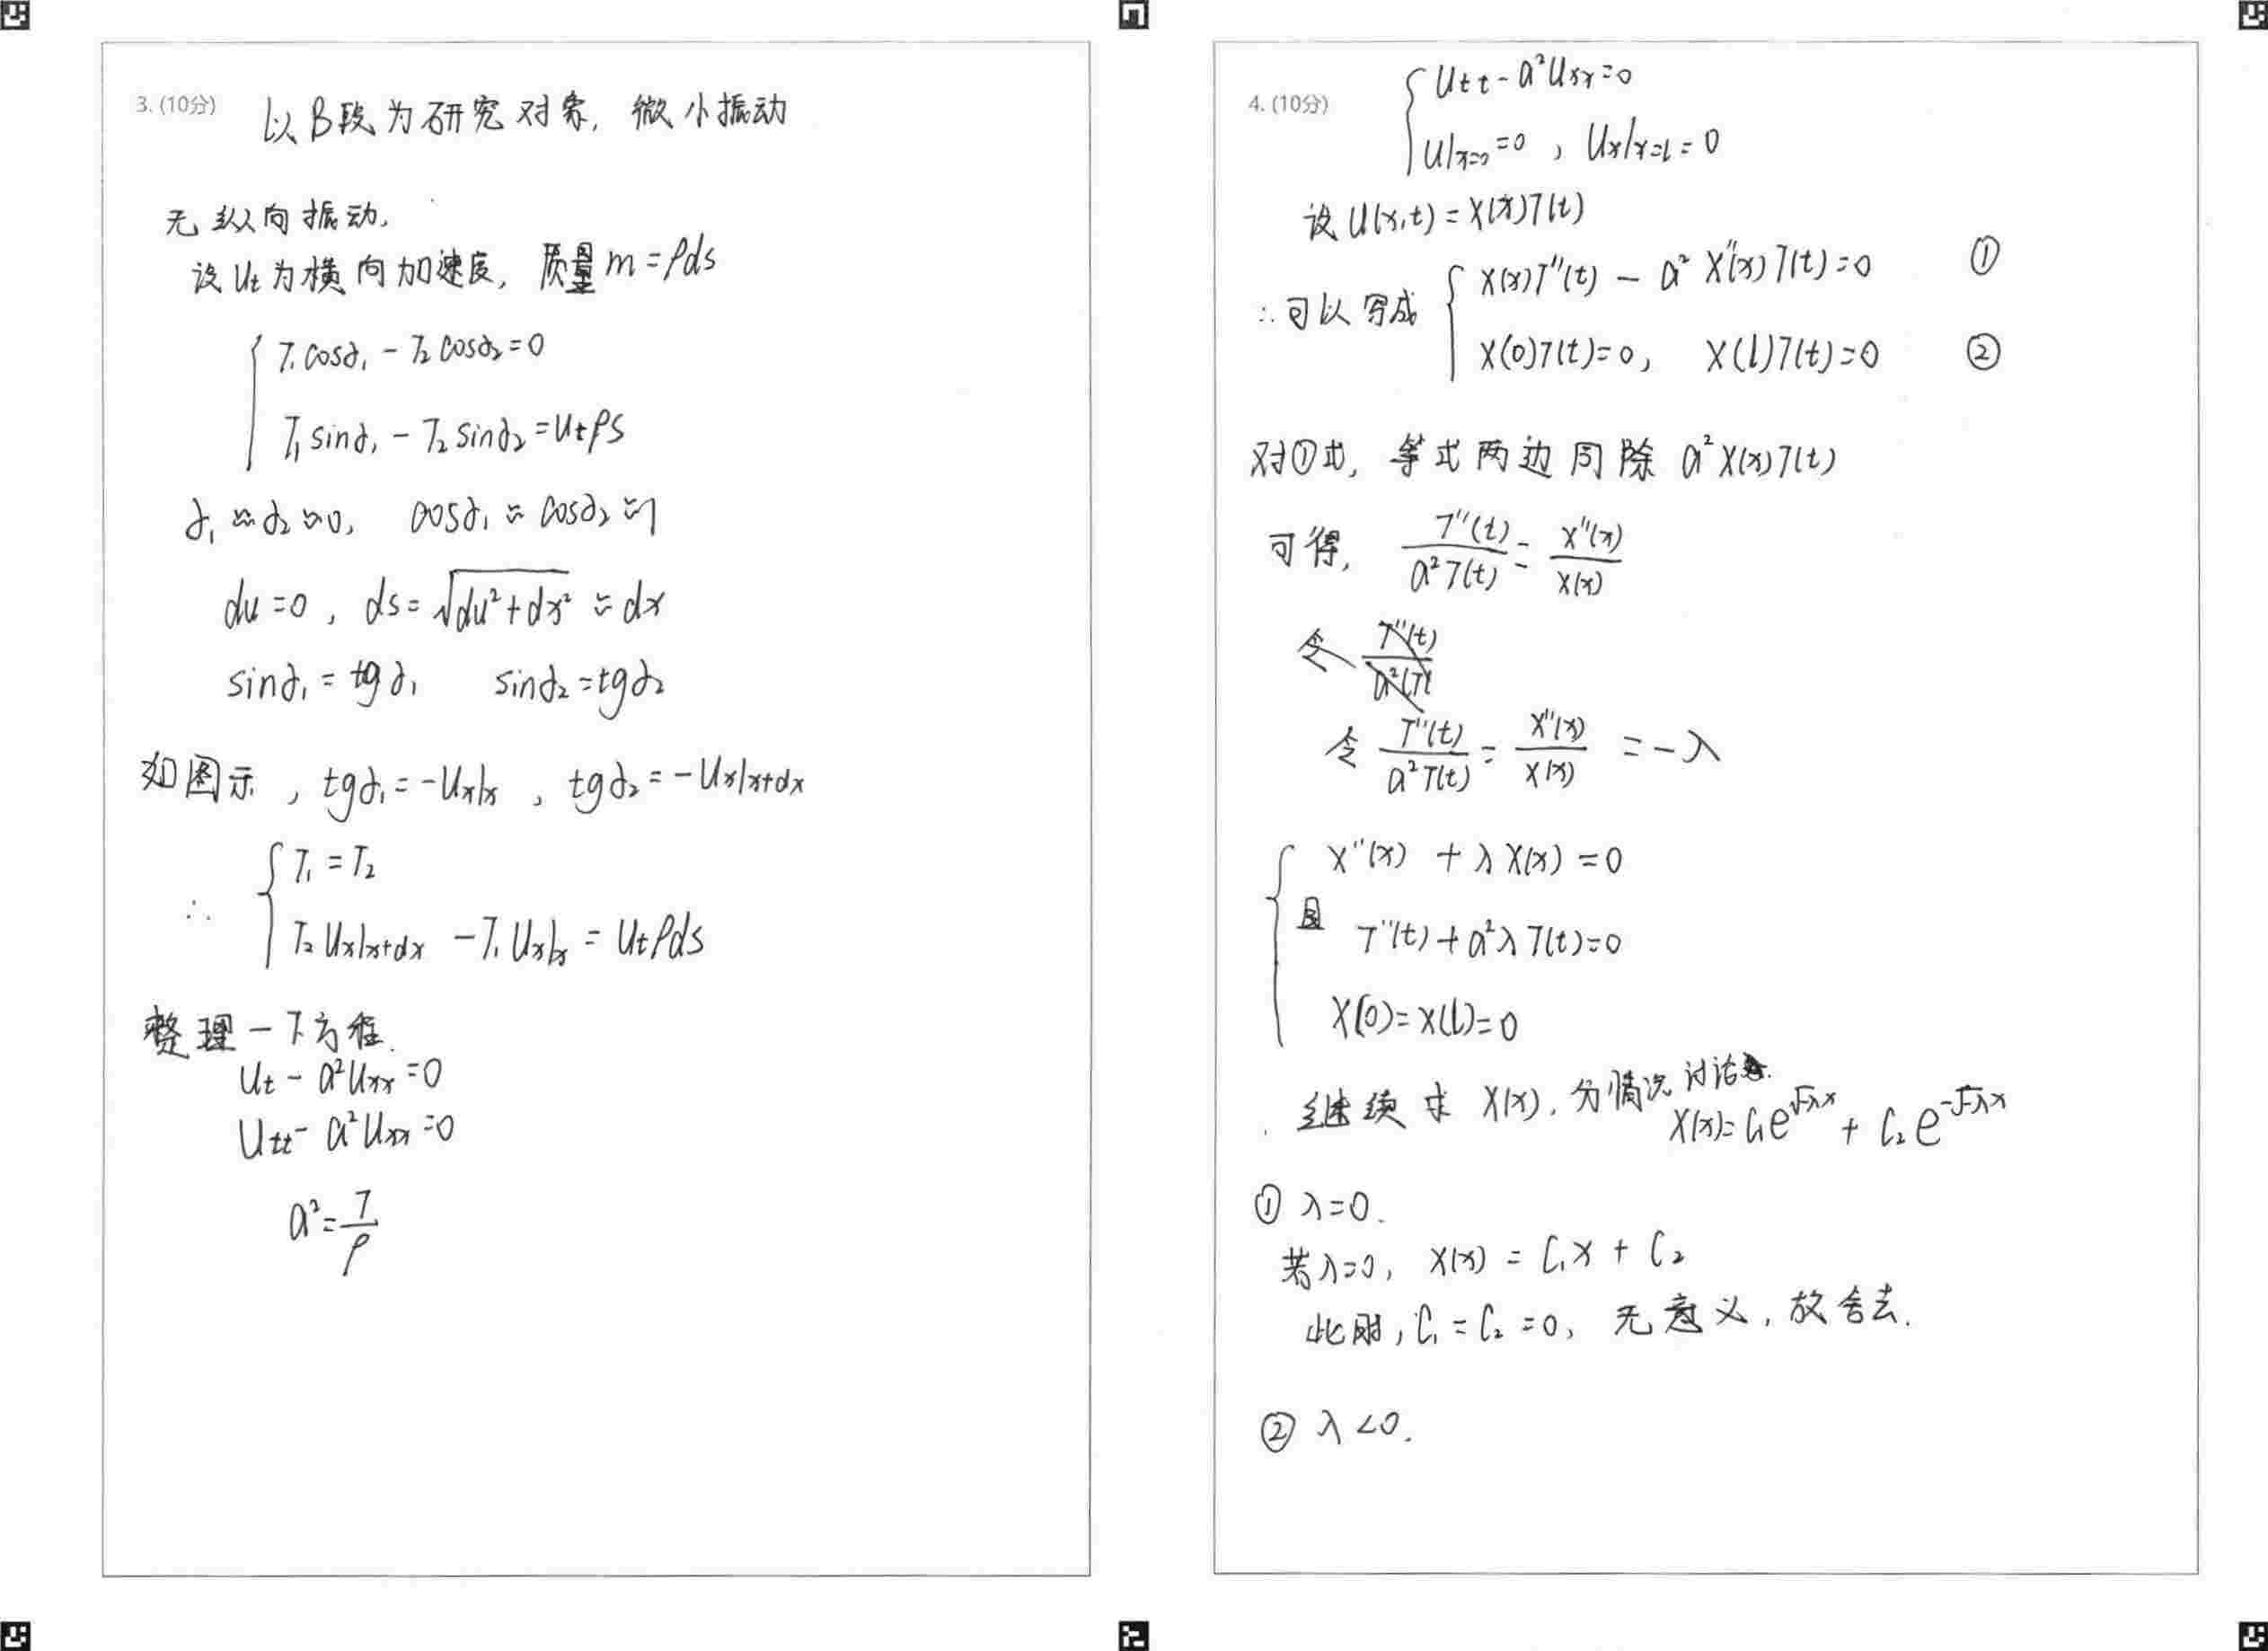 3. (10分) 以B段为研究对象, 微小振动
无纵向振动,
设 Ut 为横向加速度, 质量 m = ρds
T₁cosα₁ - T₂cosα₂ = 0
T₁sinα₁ - T₂sinα₂ = Utρs
α₁ ≈ α₂ ≈ 0, cosα₁ ≈ cosα₂ ≈ 1
du = 0, ds = √(du² + dx²) ≈ dx
sinα₁ = tgα₁ sinα₂ = tgα₂
如图示, tgα₁ = -Ux|x, tgα₂ = -Ux|x+dx
∴ { T₁ = T₂
T₂Ux|x+dx - T₁Ux|x = Utρds
整理一下方程.
Ut - a²Uxx = 0
Utt - a²Uxx = 0
a² = T/ρ
4. (10分) { Utt - a²Uxx = 0
U|x=0 = 0, Ux|x=l = 0
设 U(x,t) = X(x)T(t)
∴可以写成 { X(x)T''(t) - a²X''(x)T(t) = 0 ①
X(0)T(t) = 0, X(l)T(t) = 0 ②
对①式, 等式两边同除 a²X(x)T(t)
可得, T''(t)/a²T(t) = X''(x)/X(x)
令 T''(t)/a²(T(
令 T''(t)/a²T(t) = X''(x)/X(x) = -λ
X''(x) + λX(x) = 0
且 T''(t) + a²λT(t) = 0
X(0) = X(l) = 0
继续求 X(x), 分情况讨论.
X(x) = C₁e^(√-λx) + C₂e^(-√-λx)
① λ=0.
若λ=0, X(x) = C₁x + C₂
此时, C₁ = C₂ = 0, 无意义, 故舍去.
② λ<0.